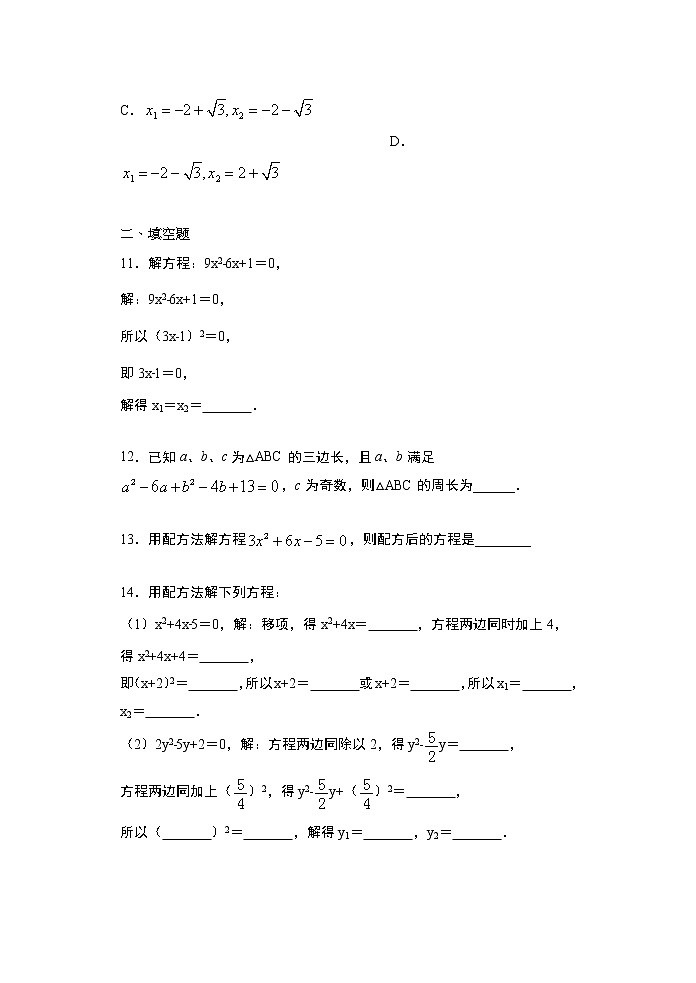 C. x₁＝−2＋√3, x₂＝−2−√3
D.
x₁＝−2−√3, x₂＝2＋√3
二、填空题
11．解方程：9x²-6x+1＝0，
解：9x²-6x+1＝0，
所以（3x-1）²＝0，
即 3x-1＝0，
解得 x₁＝x₂＝_______．
12．已知 a、b、c 为△ABC 的三边长，且 a、b 满足
a²−6a+b²−4b+13＝0，c 为奇数，则△ABC 的周长为______．
13．用配方法解方程3x²+6x−5＝0，则配方后的方程是________
14．用配方法解下列方程：
（1）x²+4x-5＝0，解：移项，得 x²+4x＝_______，方程两边同时加上 4，
得 x²+4x+4＝_______，
即(x+2)²＝_______,所以x+2＝_______或x+2＝_______,所以x₁＝_______，
x₂＝_______．
（2）2y²-5y+2＝0，解：方程两边同除以 2，得 y²-5/2y＝_______，
方程两边同加上（5/4）²，得 y²-5/2y+（5/4）²＝_______，
所以（_______）²＝_______，解得 y₁＝_______，y₂＝_______．